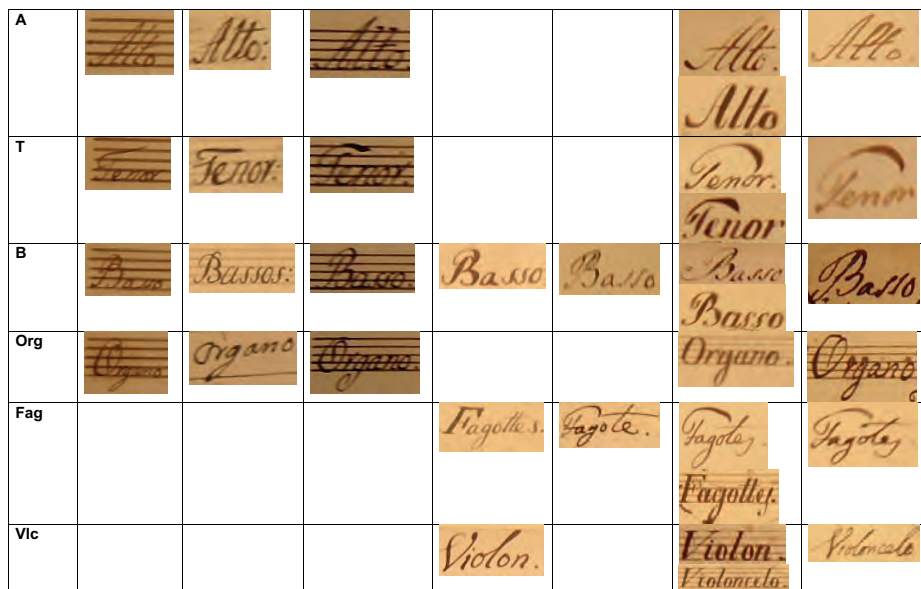 A Alto Alto: Alto. Alto. Alto.
Alto
T Tenor Tenor: Tenor. Tenor. Tenor
Tenor
B Basso Bassos: Basso. Basso Basso Basso Basso
Basso
Org Organo Organo Organo. Organo. Organo
Fag Fagottes. Fagote. Fagotes. Fagotes
Fagottes.
Vlc Violon. Violon. Violoncelo
Violoncelo.